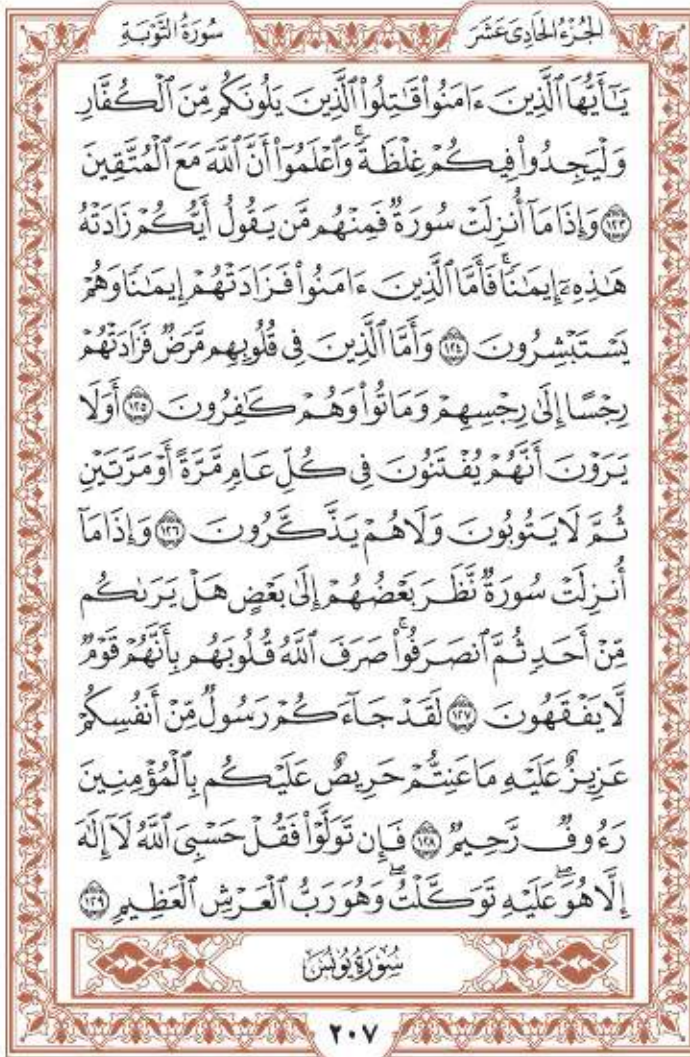 سُورَةُ التَّوْبَةِ
الجُزْءُ الحَادِى عَشَرَ
يَـٰٓأَيُّهَا ٱلَّذِينَ ءَامَنُوا۟ قَـٰتِلُوا۟ ٱلَّذِينَ يَلُونَكُم مِّنَ ٱلْكُفَّارِ
وَلْيَجِدُوا۟ فِيكُمْ غِلْظَةً ۚ وَٱعْلَمُوٓا۟ أَنَّ ٱللَّهَ مَعَ ٱلْمُتَّقِينَ
١٢٣ وَإِذَا مَآ أُنزِلَتْ سُورَةٌ فَمِنْهُم مَّن يَقُولُ أَيُّكُمْ زَادَتْهُ
هَـٰذِهِۦٓ إِيمَـٰنًا ۚ فَأَمَّا ٱلَّذِينَ ءَامَنُوا۟ فَزَادَتْهُمْ إِيمَـٰنًا وَهُمْ
يَسْتَبْشِرُونَ ١٢٤ وَأَمَّا ٱلَّذِينَ فِى قُلُوبِهِم مَّرَضٌ فَزَادَتْهُمْ
رِجْسًا إِلَىٰ رِجْسِهِمْ وَمَاتُوا۟ وَهُمْ كَـٰفِرُونَ ١٢٥ أَوَلَا
يَرَوْنَ أَنَّهُمْ يُفْتَنُونَ فِى كُلِّ عَامٍ مَّرَّةً أَوْ مَرَّتَيْنِ
ثُمَّ لَا يَتُوبُونَ وَلَا هُمْ يَذَّكَّرُونَ ١٢٦ وَإِذَا مَآ
أُنزِلَتْ سُورَةٌ نَّظَرَ بَعْضُهُمْ إِلَىٰ بَعْضٍ هَلْ يَرَىٰكُم
مِّنْ أَحَدٍ ثُمَّ ٱنصَرَفُوا۟ ۚ صَرَفَ ٱللَّهُ قُلُوبَهُم بِأَنَّهُمْ قَوْمٌ
لَّا يَفْقَهُونَ ١٢٧ لَقَدْ جَآءَكُمْ رَسُولٌ مِّنْ أَنفُسِكُمْ
عَزِيزٌ عَلَيْهِ مَا عَنِتُّمْ حَرِيصٌ عَلَيْكُم بِٱلْمُؤْمِنِينَ
رَءُوفٌ رَّحِيمٌ ١٢٨ فَإِن تَوَلَّوْا۟ فَقُلْ حَسْبِىَ ٱللَّهُ لَآ إِلَـٰهَ
إِلَّا هُوَ ۖ عَلَيْهِ تَوَكَّلْتُ ۖ وَهُوَ رَبُّ ٱلْعَرْشِ ٱلْعَظِيمِ ١٢٩
سُورَةُ يُونُسَ
٢٠٧